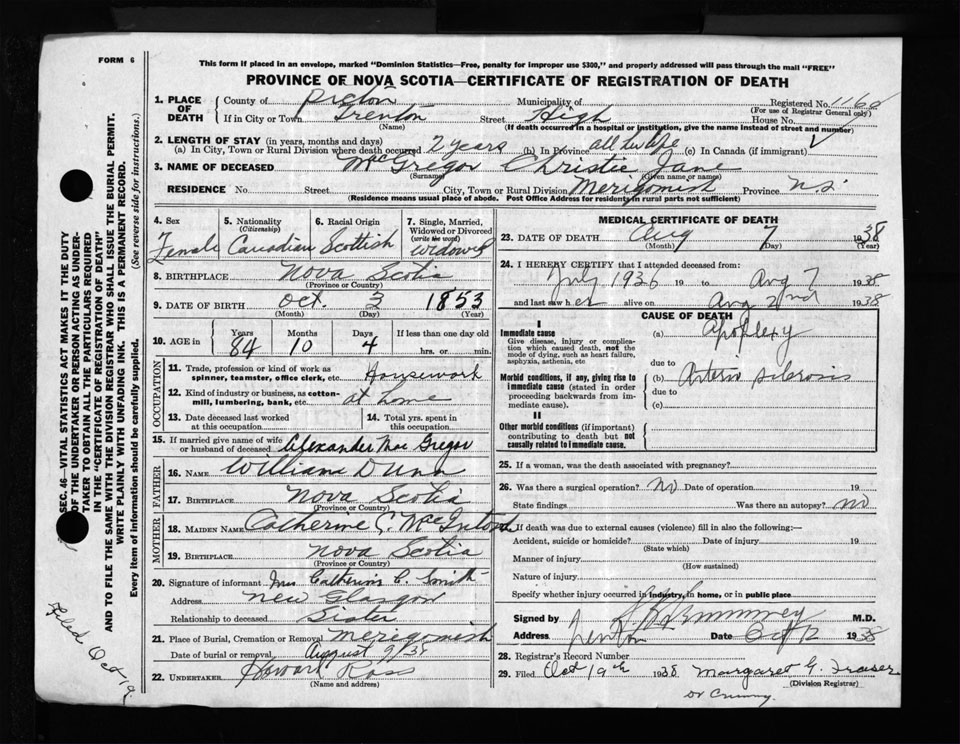 FORM 6
This form if placed in an envelope, marked "Dominion Statistics—Free, penalty for improper use $300," and properly addressed will pass through the mail "FREE"
PROVINCE OF NOVA SCOTIA—CERTIFICATE OF REGISTRATION OF DEATH
1. PLACE OF DEATH
County of Pictou Municipality of Registered No. 1160
(For use of Registrar General only)
If in City or Town Trenton Street High House No.
(Name) (If death occurred in a hospital or institution, give the name instead of street and number)
2. LENGTH OF STAY (in years, months and days)
(a) In City, Town or Rural Division where death occurred 2 years (b) In Province all her life (c) In Canada (if immigrant)
3. NAME OF DECEASED MacGregor Christie Jane
(Surname) (Given name or names)
RESIDENCE No. Street City, Town or Rural Division Merigomish Province N.S.
(Residence means usual place of abode. Post Office Address for residents in rural parts not sufficient)
4. Sex Female
5. Nationality (Citizenship) Canadian
6. Racial Origin Scottish
7. Single, Married, Widowed or Divorced (write the word) Widowed
8. BIRTHPLACE Nova Scotia
(Province or Country)
9. DATE OF BIRTH Oct. 3 1853
(Month) (Day) (Year)
10. AGE in Years 84 Months 10 Days 4 If less than one day old hrs. or min.
OCCUPATION
11. Trade, profession or kind of work as spinner, teamster, office clerk, etc. Housework
12. Kind of industry or business, as cotton-mill, lumbering, bank, etc. at home
13. Date deceased last worked at this occupation
14. Total yrs. spent in this occupation
15. If married give name of wife or husband of deceased Alexander MacGregor
FATHER
16. NAME William Dunn
17. BIRTHPLACE Nova Scotia
(Province or Country)
MOTHER
18. MAIDEN NAME Catherine C. MacIntosh
19. BIRTHPLACE Nova Scotia
(Province or Country)
20. Signature of informant Mrs Catherine C. Smith
Address New Glasgow
Relationship to deceased Sister
21. Place of Burial, Cremation or Removal Merigomish
Date of burial or removal August 9/38
22. UNDERTAKER Howard Ross
(Name and address)
MEDICAL CERTIFICATE OF DEATH
23. DATE OF DEATH Aug 7 1938
(Month) (Day) (Year)
24. I HEREBY CERTIFY that I attended deceased from:
July 1936 19 to Aug 7 1938
and last saw her alive on Aug 2nd 1938
CAUSE OF DEATH
I
Immediate cause
Give disease, injury or complication which caused death, not the mode of dying, such as heart failure, asphyxia, asthenia, etc
(a) Apoplexy
due to
Morbid conditions, if any, giving rise to immediate cause (stated in order proceeding backwards from immediate cause).
(b) Arterio sclerosis
due to
(c)
II
Other morbid conditions (if important) contributing to death but not causally related to immediate cause.
25. If a woman, was the death associated with pregnancy?
26. Was there a surgical operation? no Date of operation 19
State findings Was there an autopsy? no
If death was due to external causes (violence) fill in also the following:—
Accident, suicide or homicide? Date of injury 19
(State which)
Manner of injury
(How sustained)
Nature of injury
Specify whether injury occurred in industry, in home, or in public place
Signed by M.D.
Address Trenton Date Oct 12 1938
28. Registrar's Record Number
29. Filed Oct 19th 1938 Margaret G. Fraser
(Division Registrar)
SEC. 46—VITAL STATISTICS ACT MAKES IT THE DUTY OF THE UNDERTAKER OR PERSON ACTING AS UNDERTAKER TO OBTAIN ALL THE PARTICULARS REQUIRED IN THE "CERTIFICATE OF REGISTRATION OF DEATH"
AND TO FILE THE SAME WITH THE DIVISION REGISTRAR WHO SHALL ISSUE THE BURIAL PERMIT.
WRITE PLAINLY WITH UNFADING INK. THIS IS A PERMANENT RECORD.
Every item of information should be carefully supplied. (See reverse side for instructions.)
Filed Oct 19